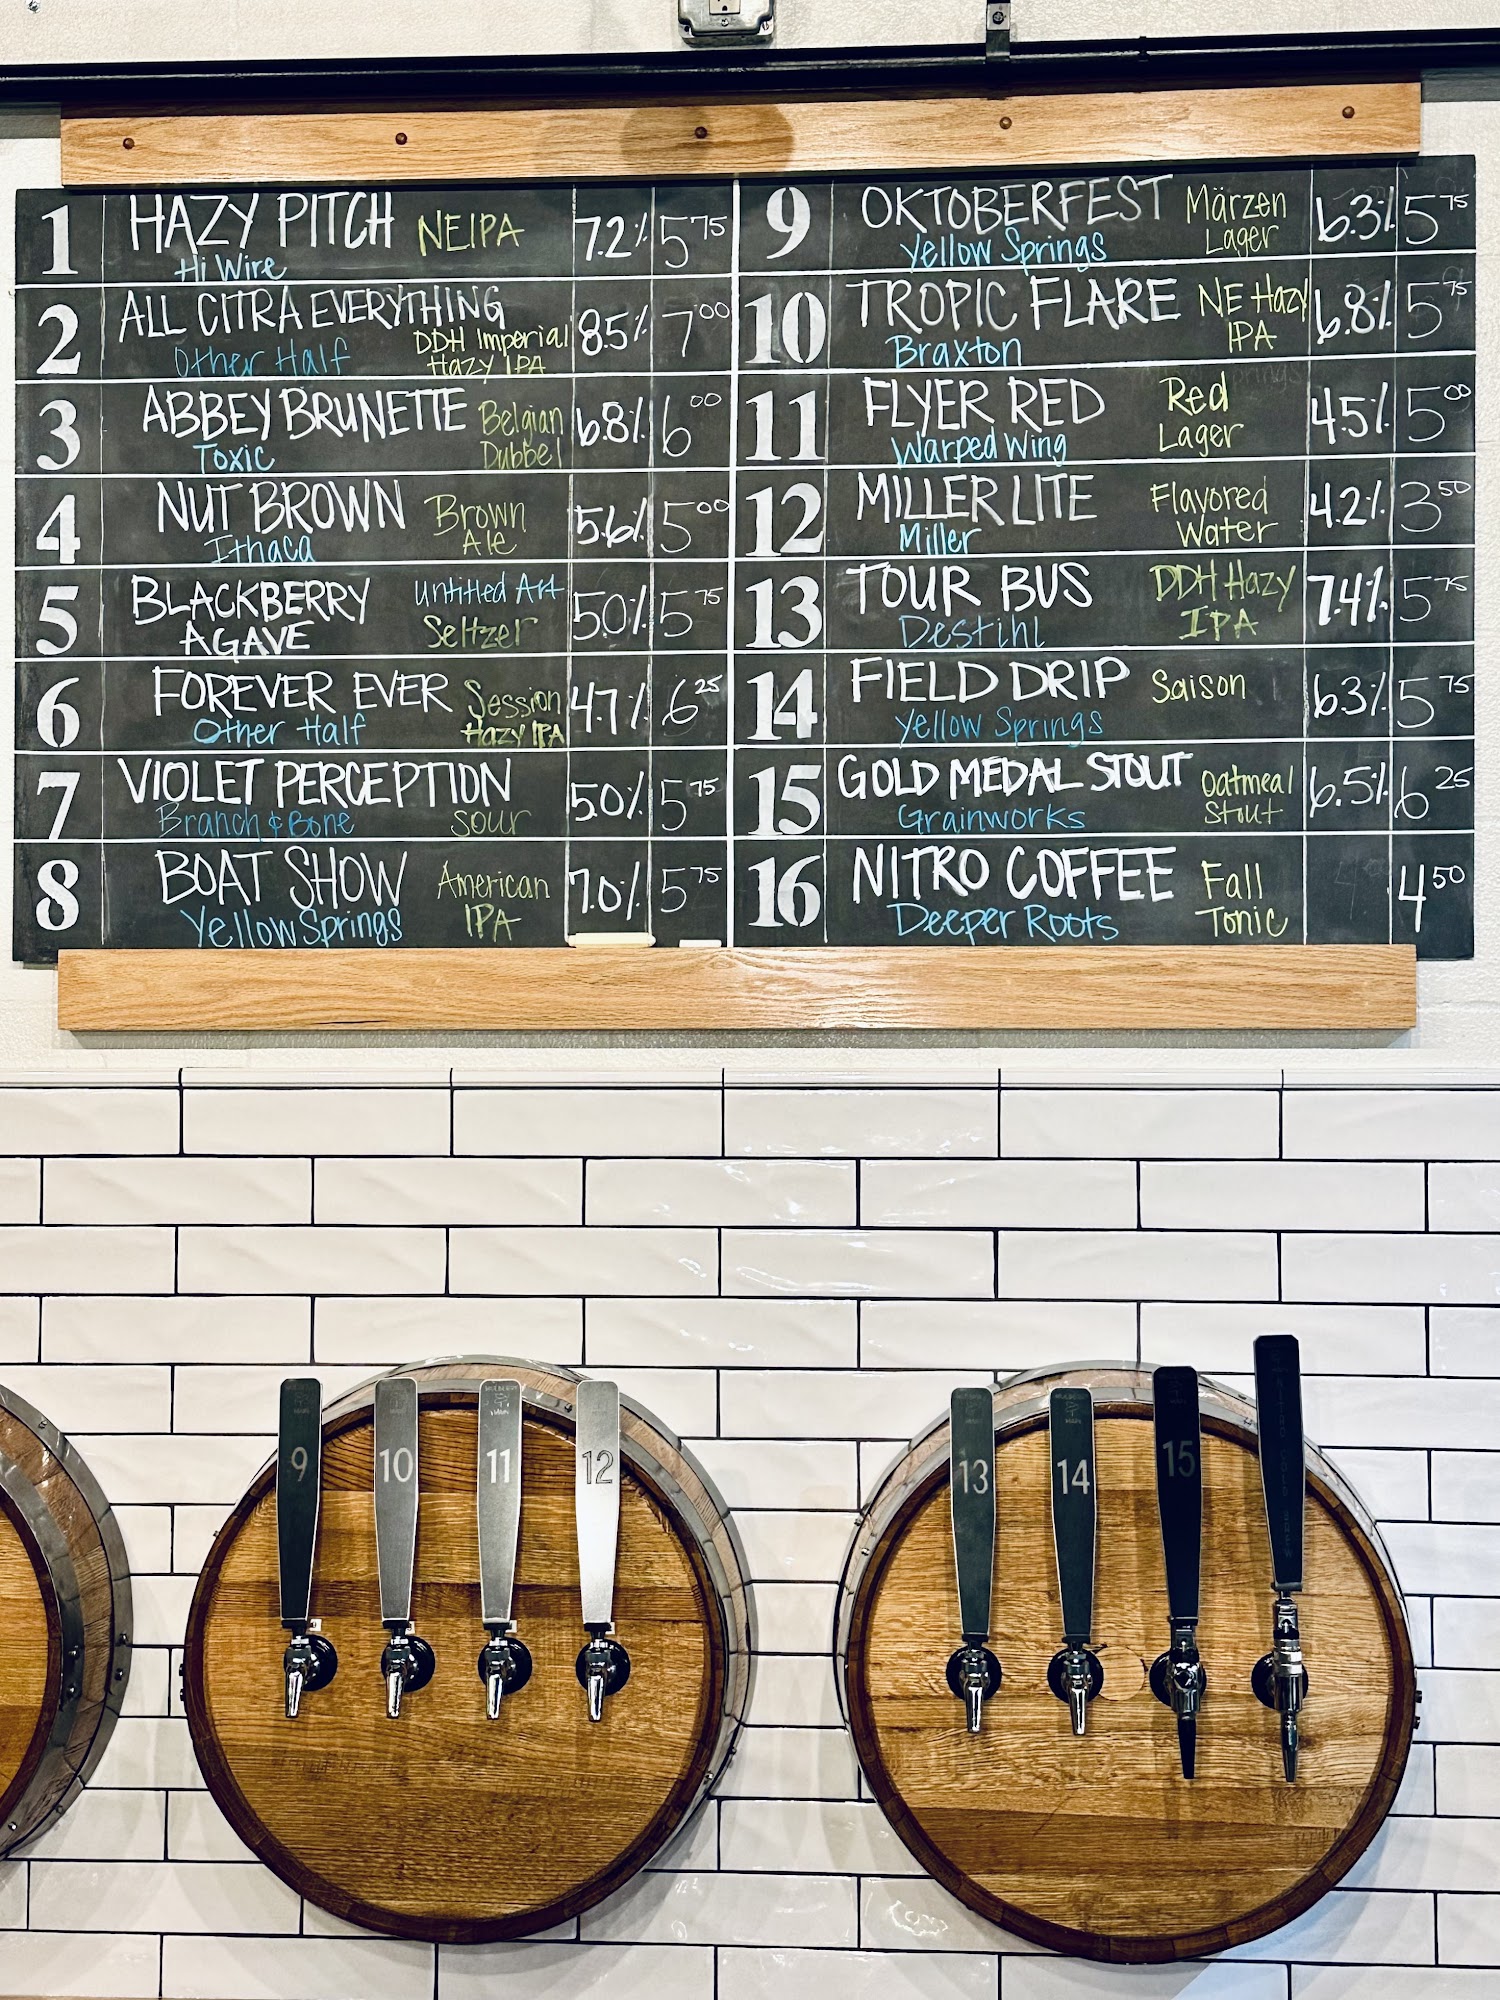 1 HAZY PITCH NEIPA 7.2% 5 75
Hi Wire
2 ALL CITRA EVERYTHING 8.5% 7 00
Other Half DDH Imperial
Hazy IPA
3 ABBEY BRUNETTE Belgian 6.8% 6 00
Toxic Dubbel
4 NUT BROWN Brown 5.6% 5 00
Ithaca Ale
5 BLACKBERRY Untitled Art 5.0% 5 75
AGAVE Seltzer
6 FOREVER EVER Session 4.7% 6 25
Other Half Hazy IPA
7 VIOLET PERCEPTION 5.0% 5 75
Branch & Bone Sour
8 BOAT SHOW American 7.0% 5 75
Yellow Springs IPA
9 OKTOBERFEST Märzen 6.3% 5 75
Yellow Springs Lager
10 TROPIC FLARE NE Hazy 6.8% 5 75
Braxton IPA
11 FLYER RED Red 4.5% 5 00
Warped Wing Lager
12 MILLER LITE Flavored 4.2% 3 50
Miller Water
13 TOUR BUS DDH Hazy 7.4% 5 75
Destihl IPA
14 FIELD DRIP Saison 6.3% 5 75
Yellow Springs
15 GOLD MEDAL STOUT Oatmeal 6.5% 6 25
Grainworks Stout
16 NITRO COFFEE Fall 4 50
Deeper Roots Tonic
9 10 11 12 13 14 15